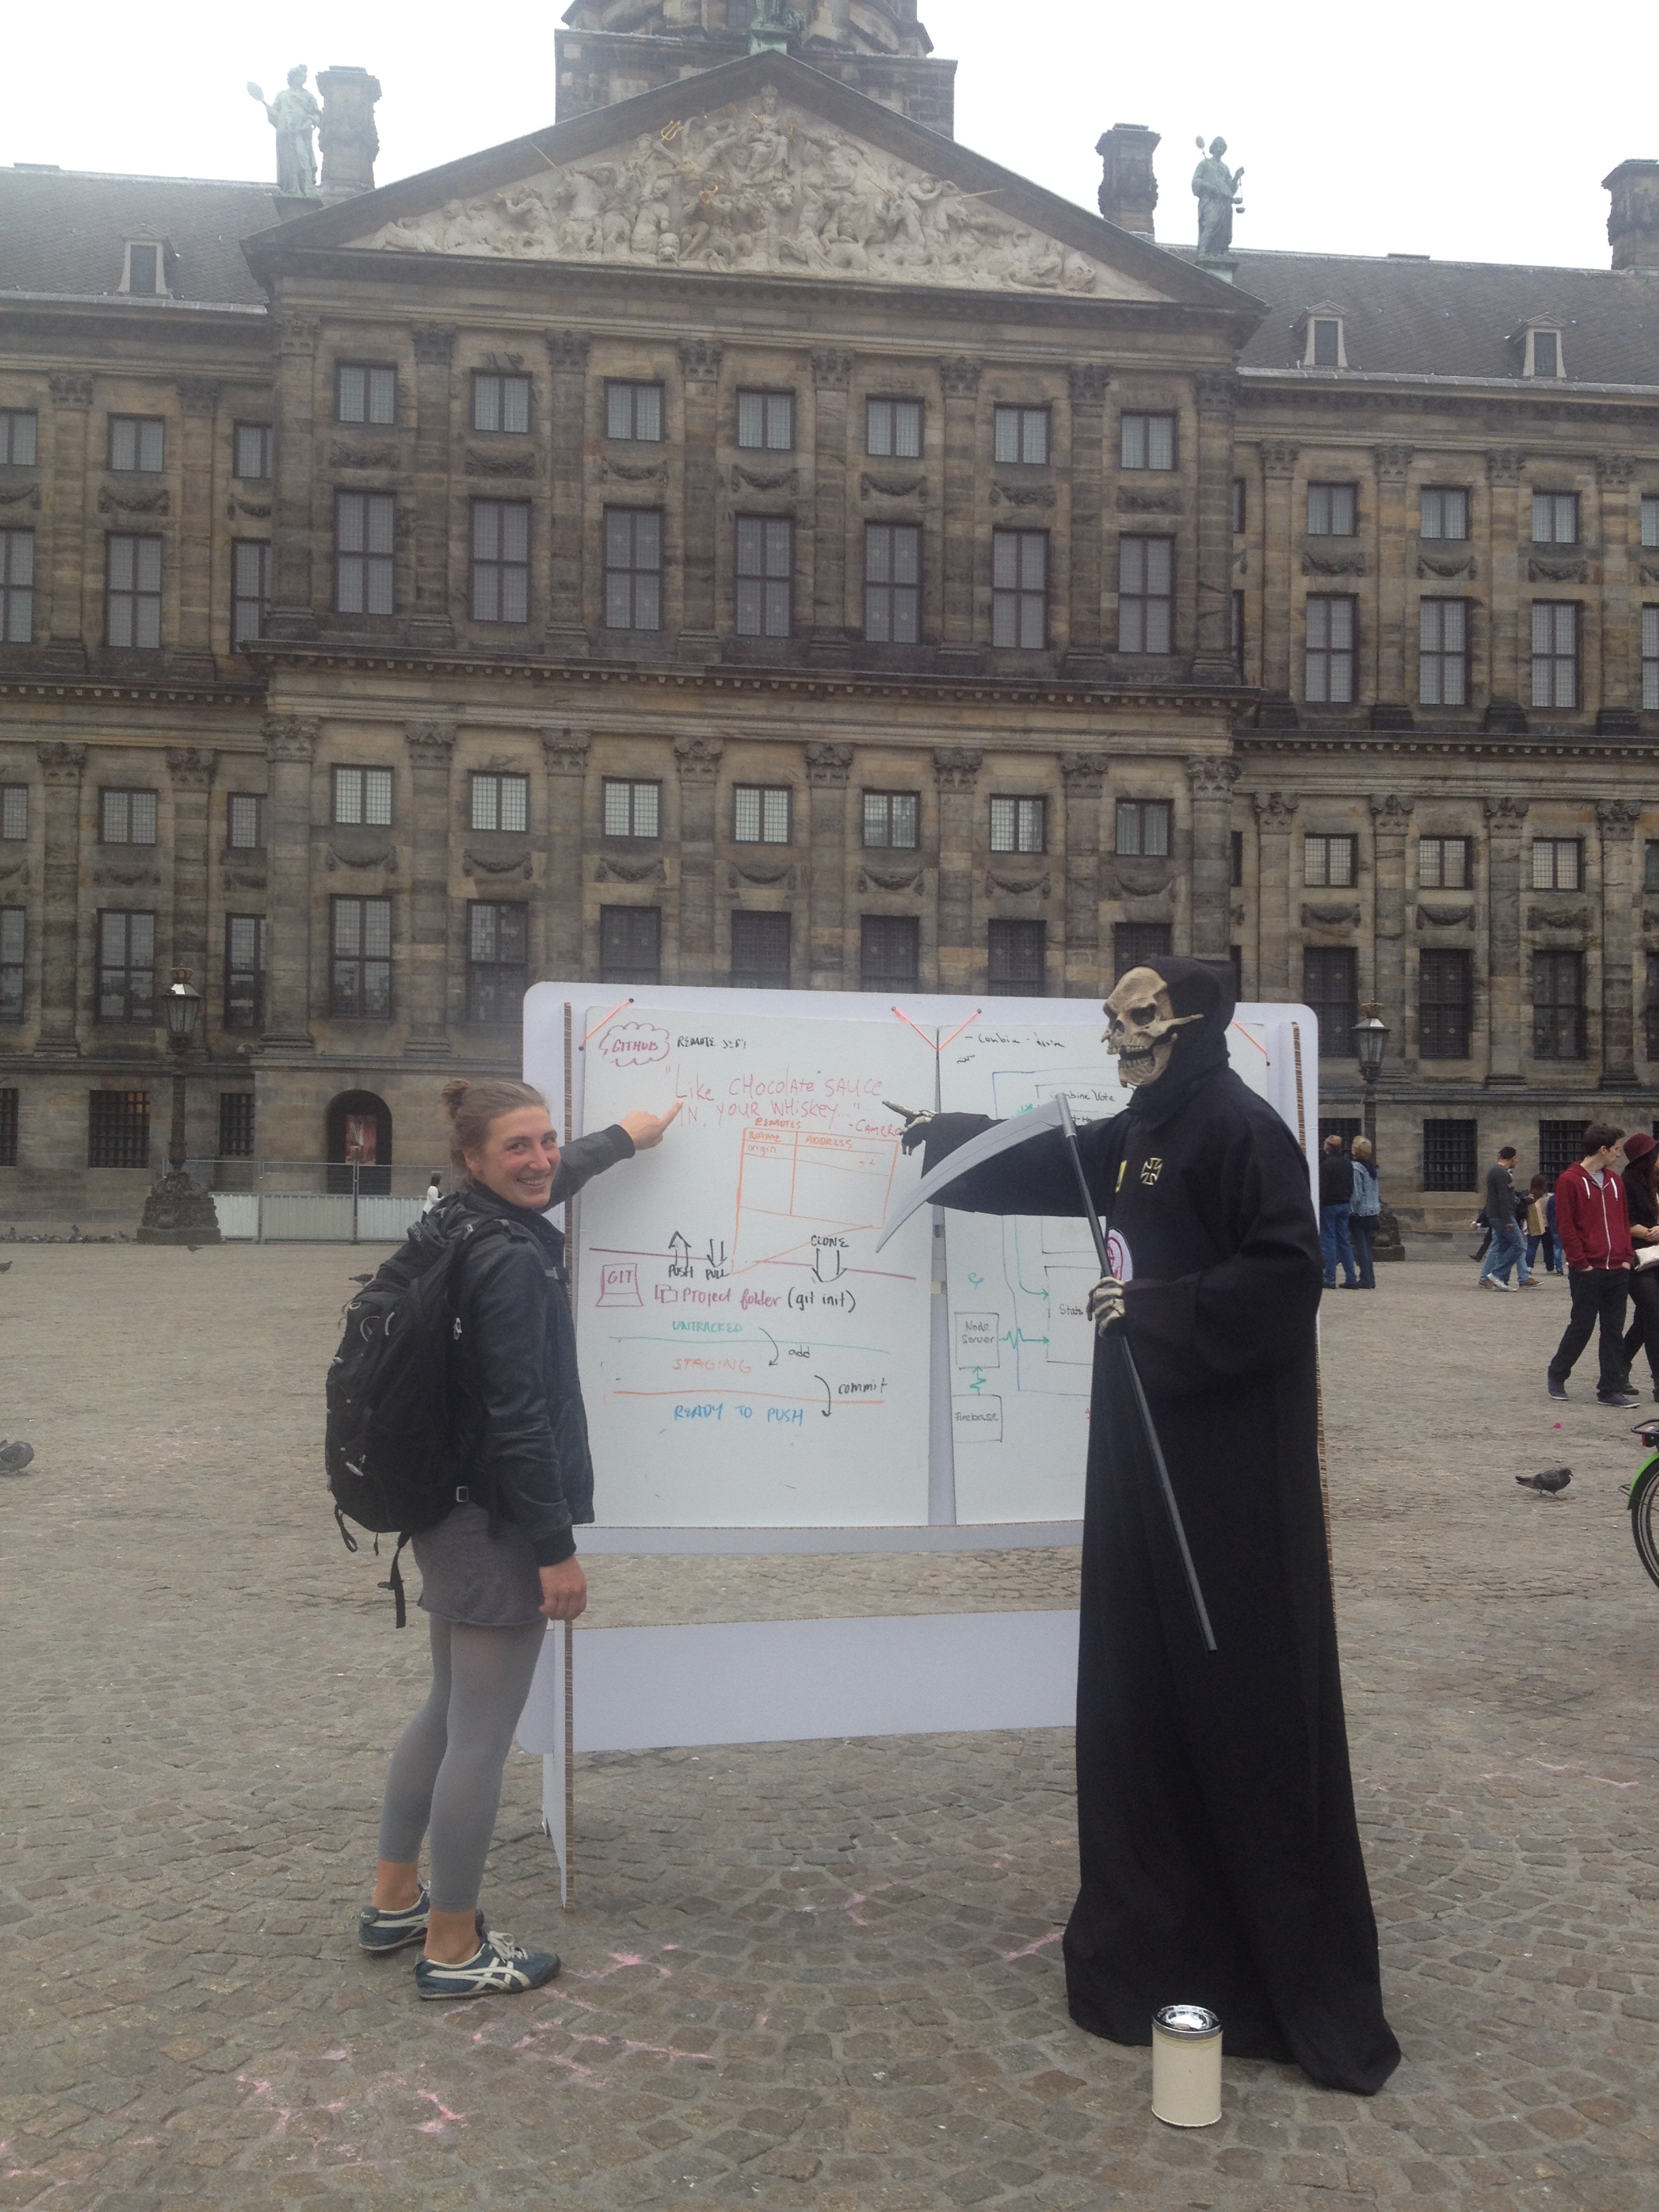 GITHUB
REMOTE
"Like CHOCOLATE SAUCE
IN YOUR WHISKEY..."
REMOTES
NAME
ADDRESS
origin
PUSH
PULL
CLONE
GIT
Project folder (git init)
UNTRACKED
add
STAGING
commit
READY TO PUSH
Vote
Node
Server
Stats
Firebase